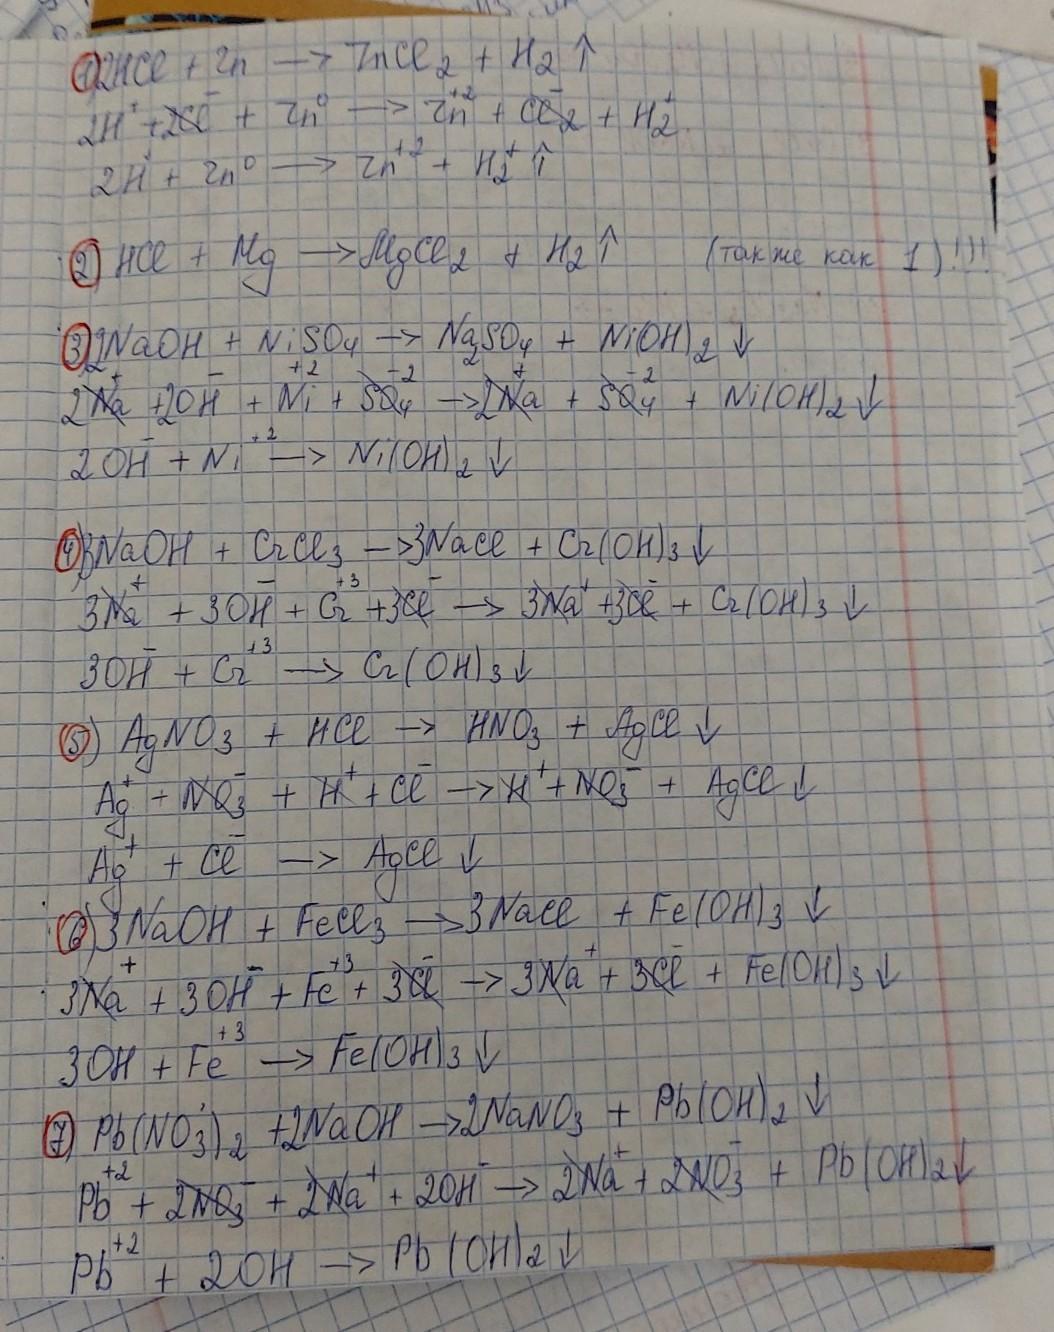 1) 2HCl + Zn → ZnCl₂ + H₂↑
2H⁺ + 2Cl⁻ + Zn⁰ → Zn⁺² + Cl⁻₂ + H₂⁺
2H⁺ + Zn⁰ → Zn⁺² + H₂⁺↑
2) HCl + Mg → MgCl₂ + H₂↑ (также как 1)!!!
3) 2NaOH + NiSO₄ → Na₂SO₄ + Ni(OH)₂↓
2Na⁺ + 2OH⁻ + Ni⁺² + SO₄⁻² → 2Na⁺ + SO₄⁻² + Ni(OH)₂↓
2OH⁻ + Ni⁺² → Ni(OH)₂↓
4) 3NaOH + CrCl₃ → 3NaCl + Cr(OH)₃↓
3Na⁺ + 3OH⁻ + Cr⁺³ + 3Cl⁻ → 3Na⁺ + 3Cl⁻ + Cr(OH)₃↓
3OH⁻ + Cr⁺³ → Cr(OH)₃↓
5) AgNO₃ + HCl → HNO₃ + AgCl↓
Ag⁺ + NO₃⁻ + H⁺ + Cl⁻ → H⁺ + NO₃⁻ + AgCl↓
Ag⁺ + Cl⁻ → AgCl↓
6) 3NaOH + FeCl₃ → 3NaCl + Fe(OH)₃↓
3Na⁺ + 3OH⁻ + Fe⁺³ + 3Cl⁻ → 3Na⁺ + 3Cl⁻ + Fe(OH)₃↓
3OH + Fe⁺³ → Fe(OH)₃↓
7) Pb(NO₃)₂ + 2NaOH → 2NaNO₃ + Pb(OH)₂↓
Pb⁺² + 2NO₃⁻ + 2Na⁺ + 2OH⁻ → 2Na⁺ + 2NO₃⁻ + Pb(OH)₂↓
Pb⁺² + 2OH → Pb(OH)₂↓